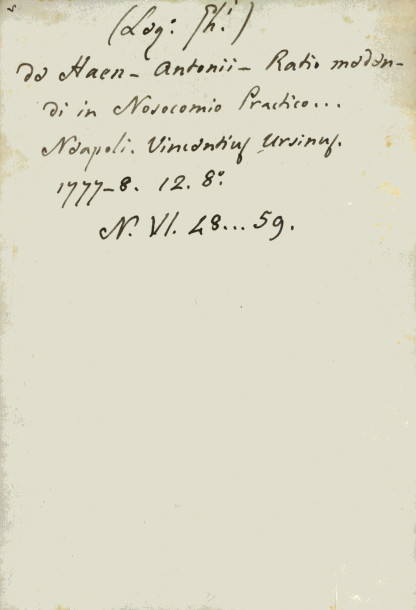 (Log: Th!)
de Haen - Antonii - Ratio meden-
di in Nosocomio Practico...
Neapoli. Vincentius Ursinus.
1777-8. 12. 8º.
N. VI. 48...59.